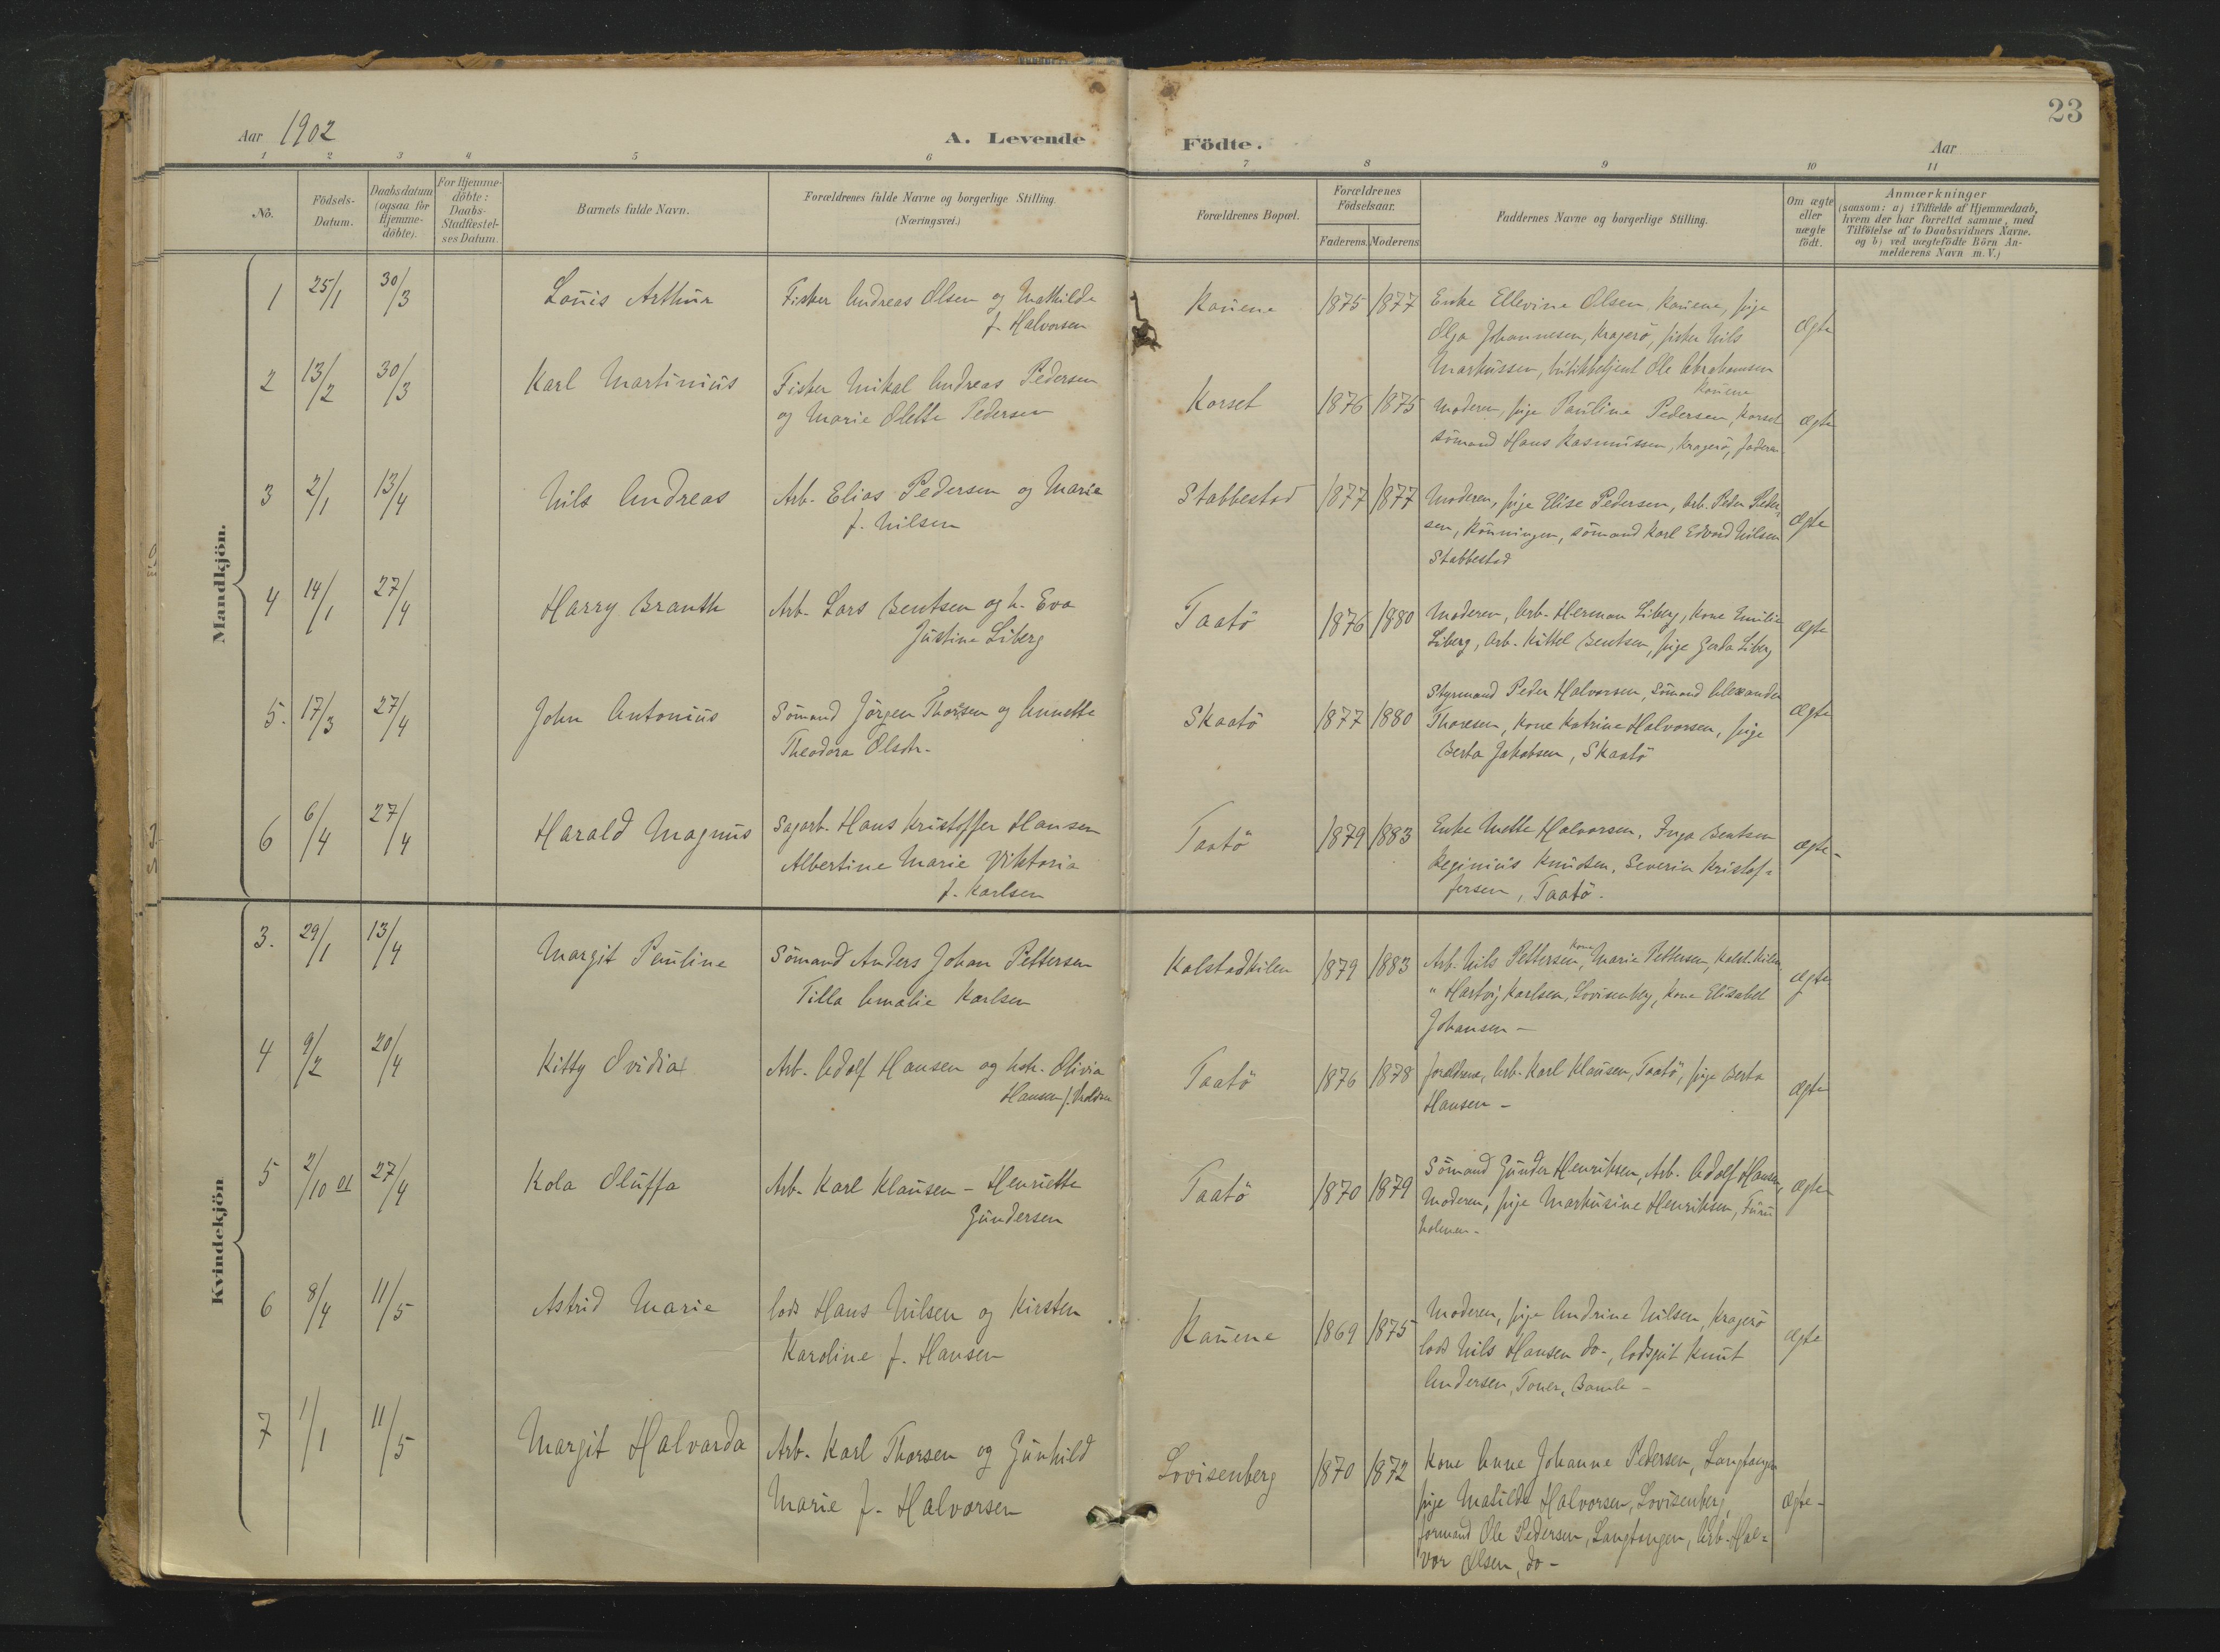 23
Aar 1902
A. Levende Födte.
Aar
1 2 3 4 5 6 7 8 9 10 11
No.
Födsels-Datum.
Daabsdatum (ogsaa for Hjemme-döbte).
For Hjemme-döbte: Daabs-Stadfæstel-ses Datum.
Barnets fulde Navn.
Forældrenes fulde Navne og borgerlige Stilling.
(Næringsvei.)
Forældrenes Bopæl.
Forældrenes Födselsaar.
Faderens. Moderens
Faddernes Navne og borgerlige Stilling.
Om ægte eller uægte födt.
Anmærkninger
(saasom: a) i Tilfælde af Hjemmedaab,
hvem der har forrettet samme, med
Tilföielse af to Daabsvidners Navne.
og b) ved uægtefödte Börn An-
melderens Navn m. V.)
Mandkjön.
1 25/1 30/3 Louis Arthur Fisker Andreas Olsen og Mathilde Kauene 1875 1877 Enke Ellevine Olsen, Kauene, pige
f. Halvorsen Olga Johannesen, Kragerö, fisker Nils ægte
Markussen, butikbetjent Ole Abrahamsen
Kauene
2 13/2 30/3 Karl Martinius Fisker Mikal Andreas Pedersen Korset 1876 1875 Moderen, pige Pauline Pedersen, Korset ægte
og Marie Olette Pedersen sömand Hans Rasmussen, Kragerö, faderen
3 2/1 13/4 Nils Andreas Arb. Elias Pedersen og Marie Stabbestad 1877 1877 Moderen, pige Elise Pedersen, Arb. Peder Peder-
f. Nilsen sen, Rönningen, sömand Karl Edvard Nilsen ægte
Stabbestad
4 14/1 27/4 Harry Branth Arb. Lars Bentsen og h. Eva Taatö 1876 1880 Moderen, Arb. Herman Liberg, Kone Emilie ægte
Justine Liberg Liberg, Arb. Kittel Bentsen, pige Gerda Liberg
5. 17/3 27/4 John Antonius Sömand Jörgen Thorsen og Annette Skaatö 1877 1880 Styrmand Peder Halvorsen, Sömand Alexander ægte
Theodora Olsdtr. Thoresen, Kone Katrine Halvorsen, pige
Berta Jakobsen, Skaatö
6 6/4 27/4 Harald Magnus Sagarb. Hans Kristoffer Hansen Taatö 1879 1883 Enke Mette Halvorsen, Inga Bentsen
Albertine Marie Viktoria Reginius Knudsen, Severin Kristof= ægte-
f. Karlsen fersen, Taatö.
Kvindekjön
3. 29/1 13/4 Margit Pauline Sömand Anders Johan Pettersen Kalstadkilen 1879 1883 Arb. Nils Pettersen, Kone Marie Pettersen, Kalst.kilen ægte
Tilla Amalie Karlsen " Hartvig Karlsen, Lovisenberg, Kone Elisabet
Johansen -
4 9/2 20/4 Kitty Ovidia Arb. Adolf Hansen og hstr. Olivia Taatö 1876 1878 Foreldrene, Arb. Karl Klausen, Taatö, pige Berta ægte
Hansen Hansen -
5 2/10 01 27/4 Kola Oluffa Arb. Karl Klausen - Henriette Taatö 1870 1879 Sömand Gunder Henriksen, Arb. Adolf Hansen, ægte
Gundersen Moderen, pige Markusine Henriksen, Furu
holmen -
6 8/4 11/5 Astrid Marie lods Hans Nilsen og Kirsten Kauene 1869 1875 Moderen, pige Andrine Nilsen, Kragerö ægte
Karoline f. Hansen lods Nils Hansen do-, lodsgut Knut
Andersen, Toner, Bamle -
7 1/1 11/5 Margit Halvarda Arb. Karl Thorsen og Gunhild Lovisenberg 1870 1872 Kone Anne Johanne Pedersen, Langtangen
Marie f. Halvorsen pige Matilde Halvorsen, Lovisenberg, ægte-
formand Ole Pedersen, Langtangen, Arb. Hal=
vor Olsen, do-